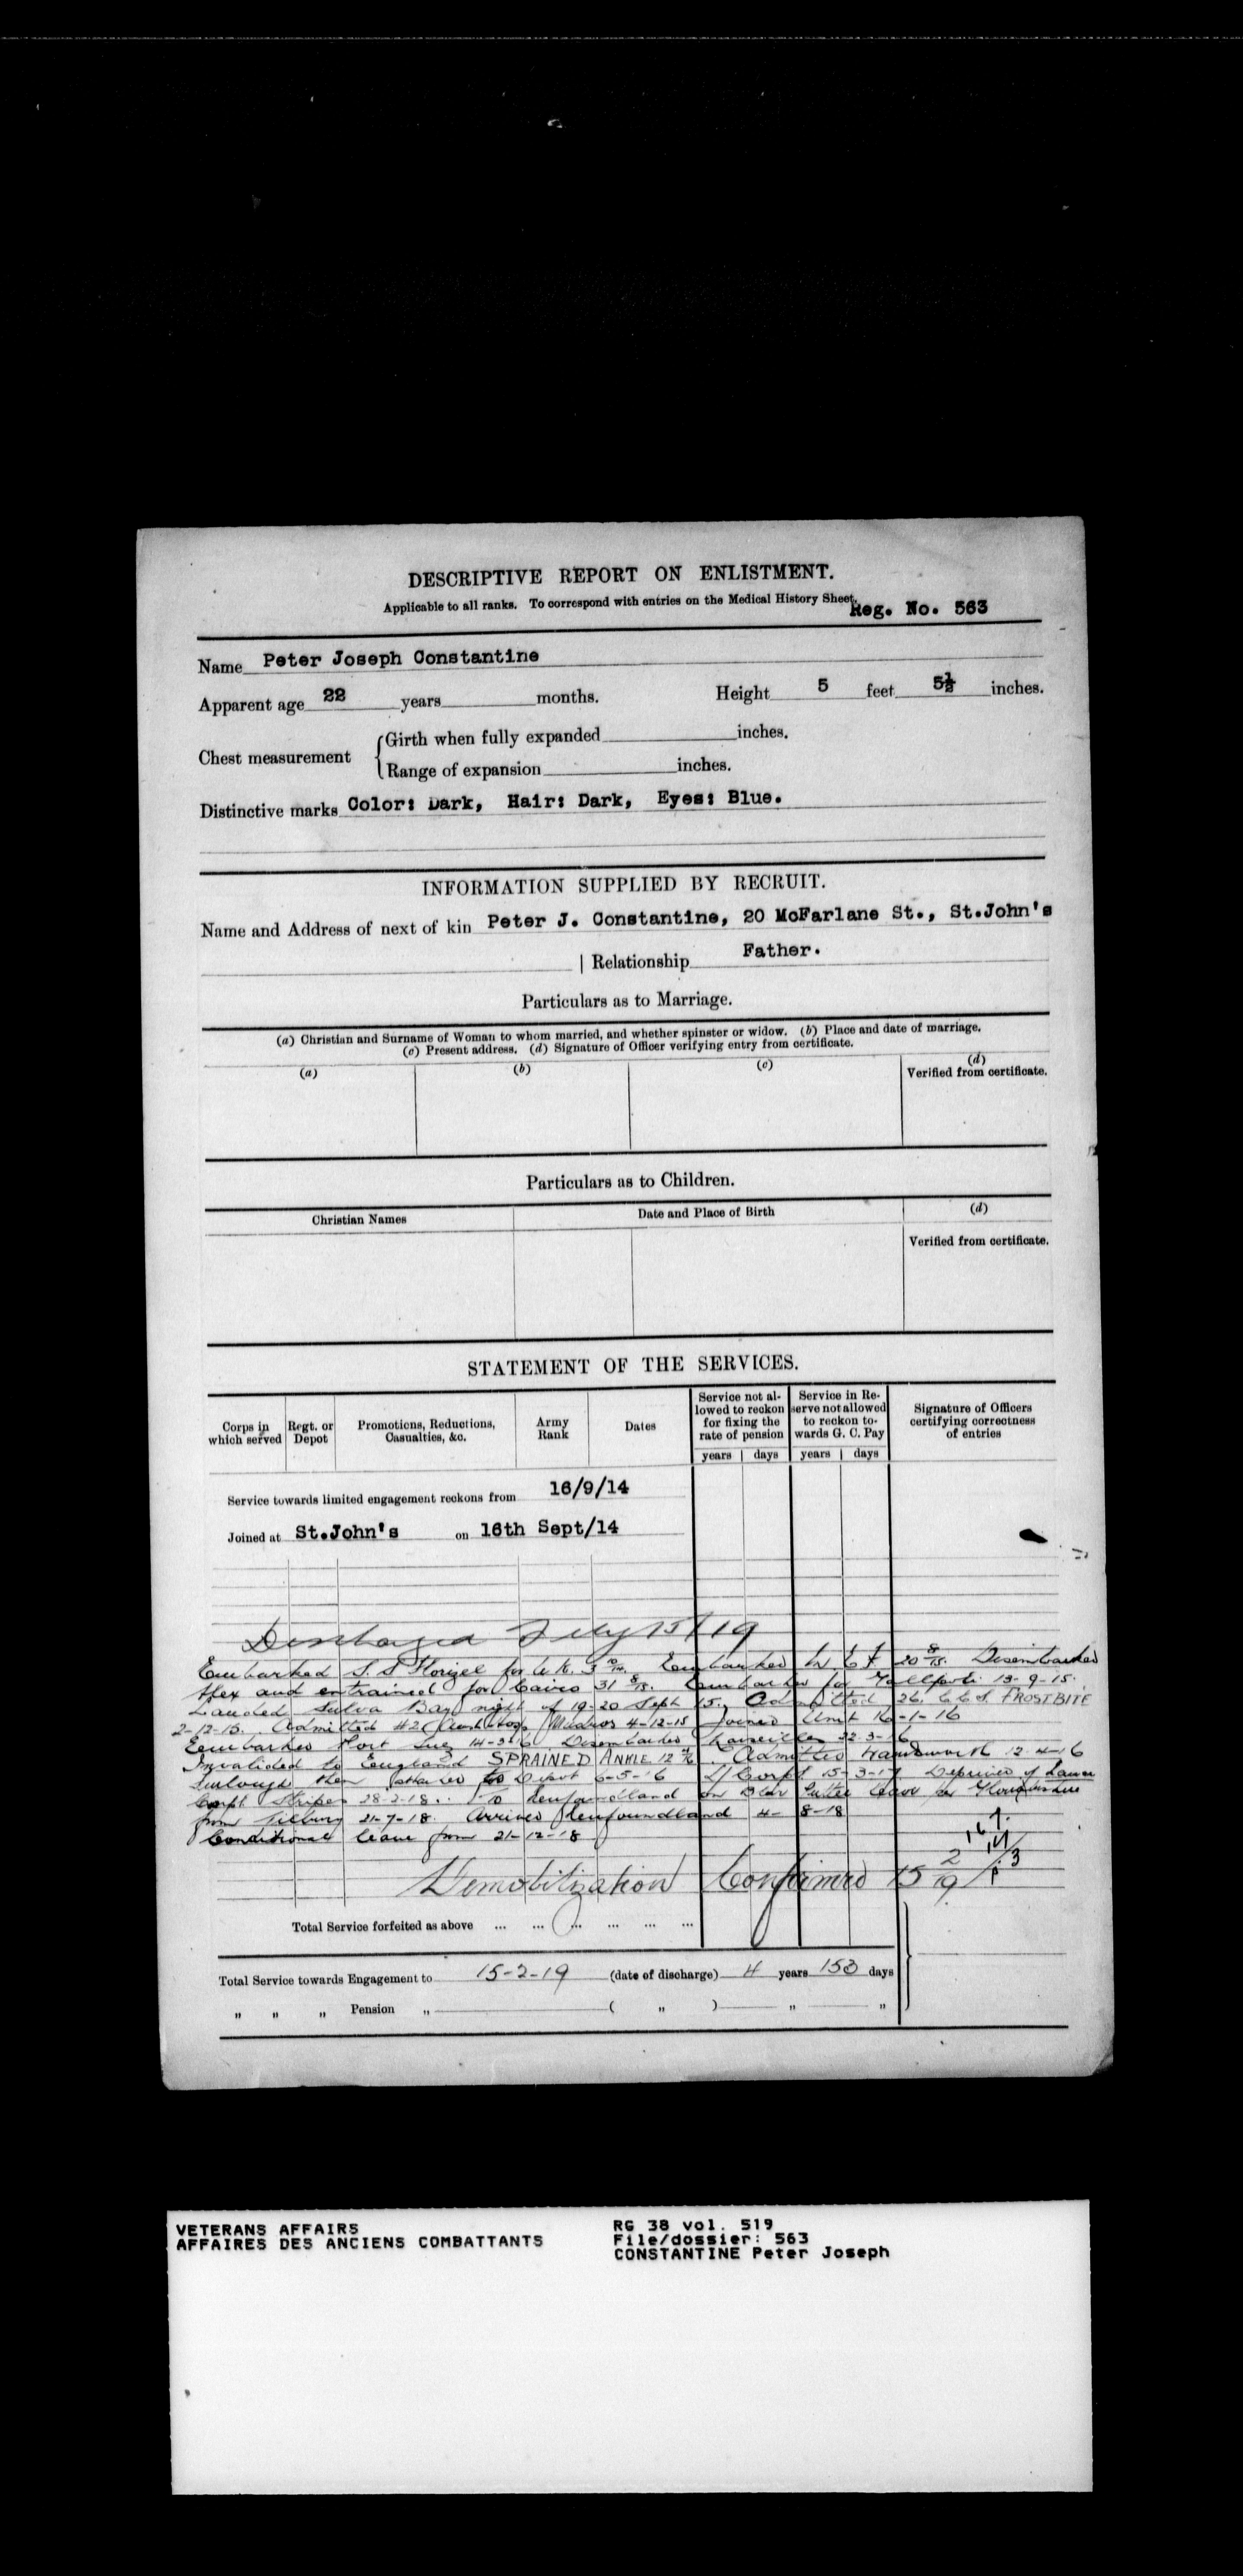 DESCRIPTIVE REPORT ON ENLISTMENT.
Applicable to all ranks. To correspond with entries on the Medical History Sheet.
Reg. No. 563
Name Peter Joseph Constantine
Apparent age 22 years months. Height 5 feet 5½ inches.
Chest measurement { Girth when fully expanded inches.
Range of expansion inches.
Distinctive marks Color: Dark, Hair: Dark, Eyes: Blue.
INFORMATION SUPPLIED BY RECRUIT.
Name and Address of next of kin Peter J. Constantine, 20 McFarlane St., St.John's
| Relationship Father.
Particulars as to Marriage.
(a) Christian and Surname of Woman to whom married, and whether spinster or widow. (b) Place and date of marriage.
(c) Present address. (d) Signature of Officer verifying entry from certificate.
(a) (b) (c) (d)
Verified from certificate.
Particulars as to Children.
Christian Names Date and Place of Birth (d)
Verified from certificate.
STATEMENT OF THE SERVICES.
Corps in which served Regt. or Depot Promotions, Reductions, Casualties, &c. Army Rank Dates Service not allowed to reckon for fixing the rate of pension Service in Reserve not allowed to reckon towards G. C. Pay Signature of Officers certifying correctness of entries
years | days years | days
Service towards limited engagement reckons from 16/9/14
Joined at St.John's on 16th Sept/14
Discharged July 15/19
Embarked S.S Florizel for U.K. 3 10/14. Embarked 20 8/15. Disembarked
Alex and entrained for Cairo 31 8/15. Embarked for Gallipoli 13-9-15.
Landed Suvla Bay night of 19-20 Sept 15. Admitted 26. C.C.S. FROSTBITE
2-12-15. Admitted #2 Aust. Hosp Mudros 4-12-15 Joined Unit 16-1-16
Embarked Port Suez 14-3-16 Disembarked Marseilles 22-3-16
Invalided to England SPRAINED ANKLE 12 4/16. Admitted Wandsworth 12-4-16
Furlough then to Depot 6-5-16 L/Corpl 15-3-17 Deprived of Lance
Corpl Stripes 28-2-18. To Newfoundland on Blue Puttee leave
from Tilbury 21-7-18 Arrived Newfoundland 4-8-18
Conditional leave from 21-12-18
Demobilization Confirmed 15 2/19
Total Service forfeited as above ... ... ... ... ... ...
Total Service towards Engagement to 15-2-19 (date of discharge) 4 years 153 days
" " " Pension " ( " ) " "
VETERANS AFFAIRS
AFFAIRES DES ANCIENS COMBATTANTS
RG 38 vol. 519
File/dossier: 563
CONSTANTINE Peter Joseph